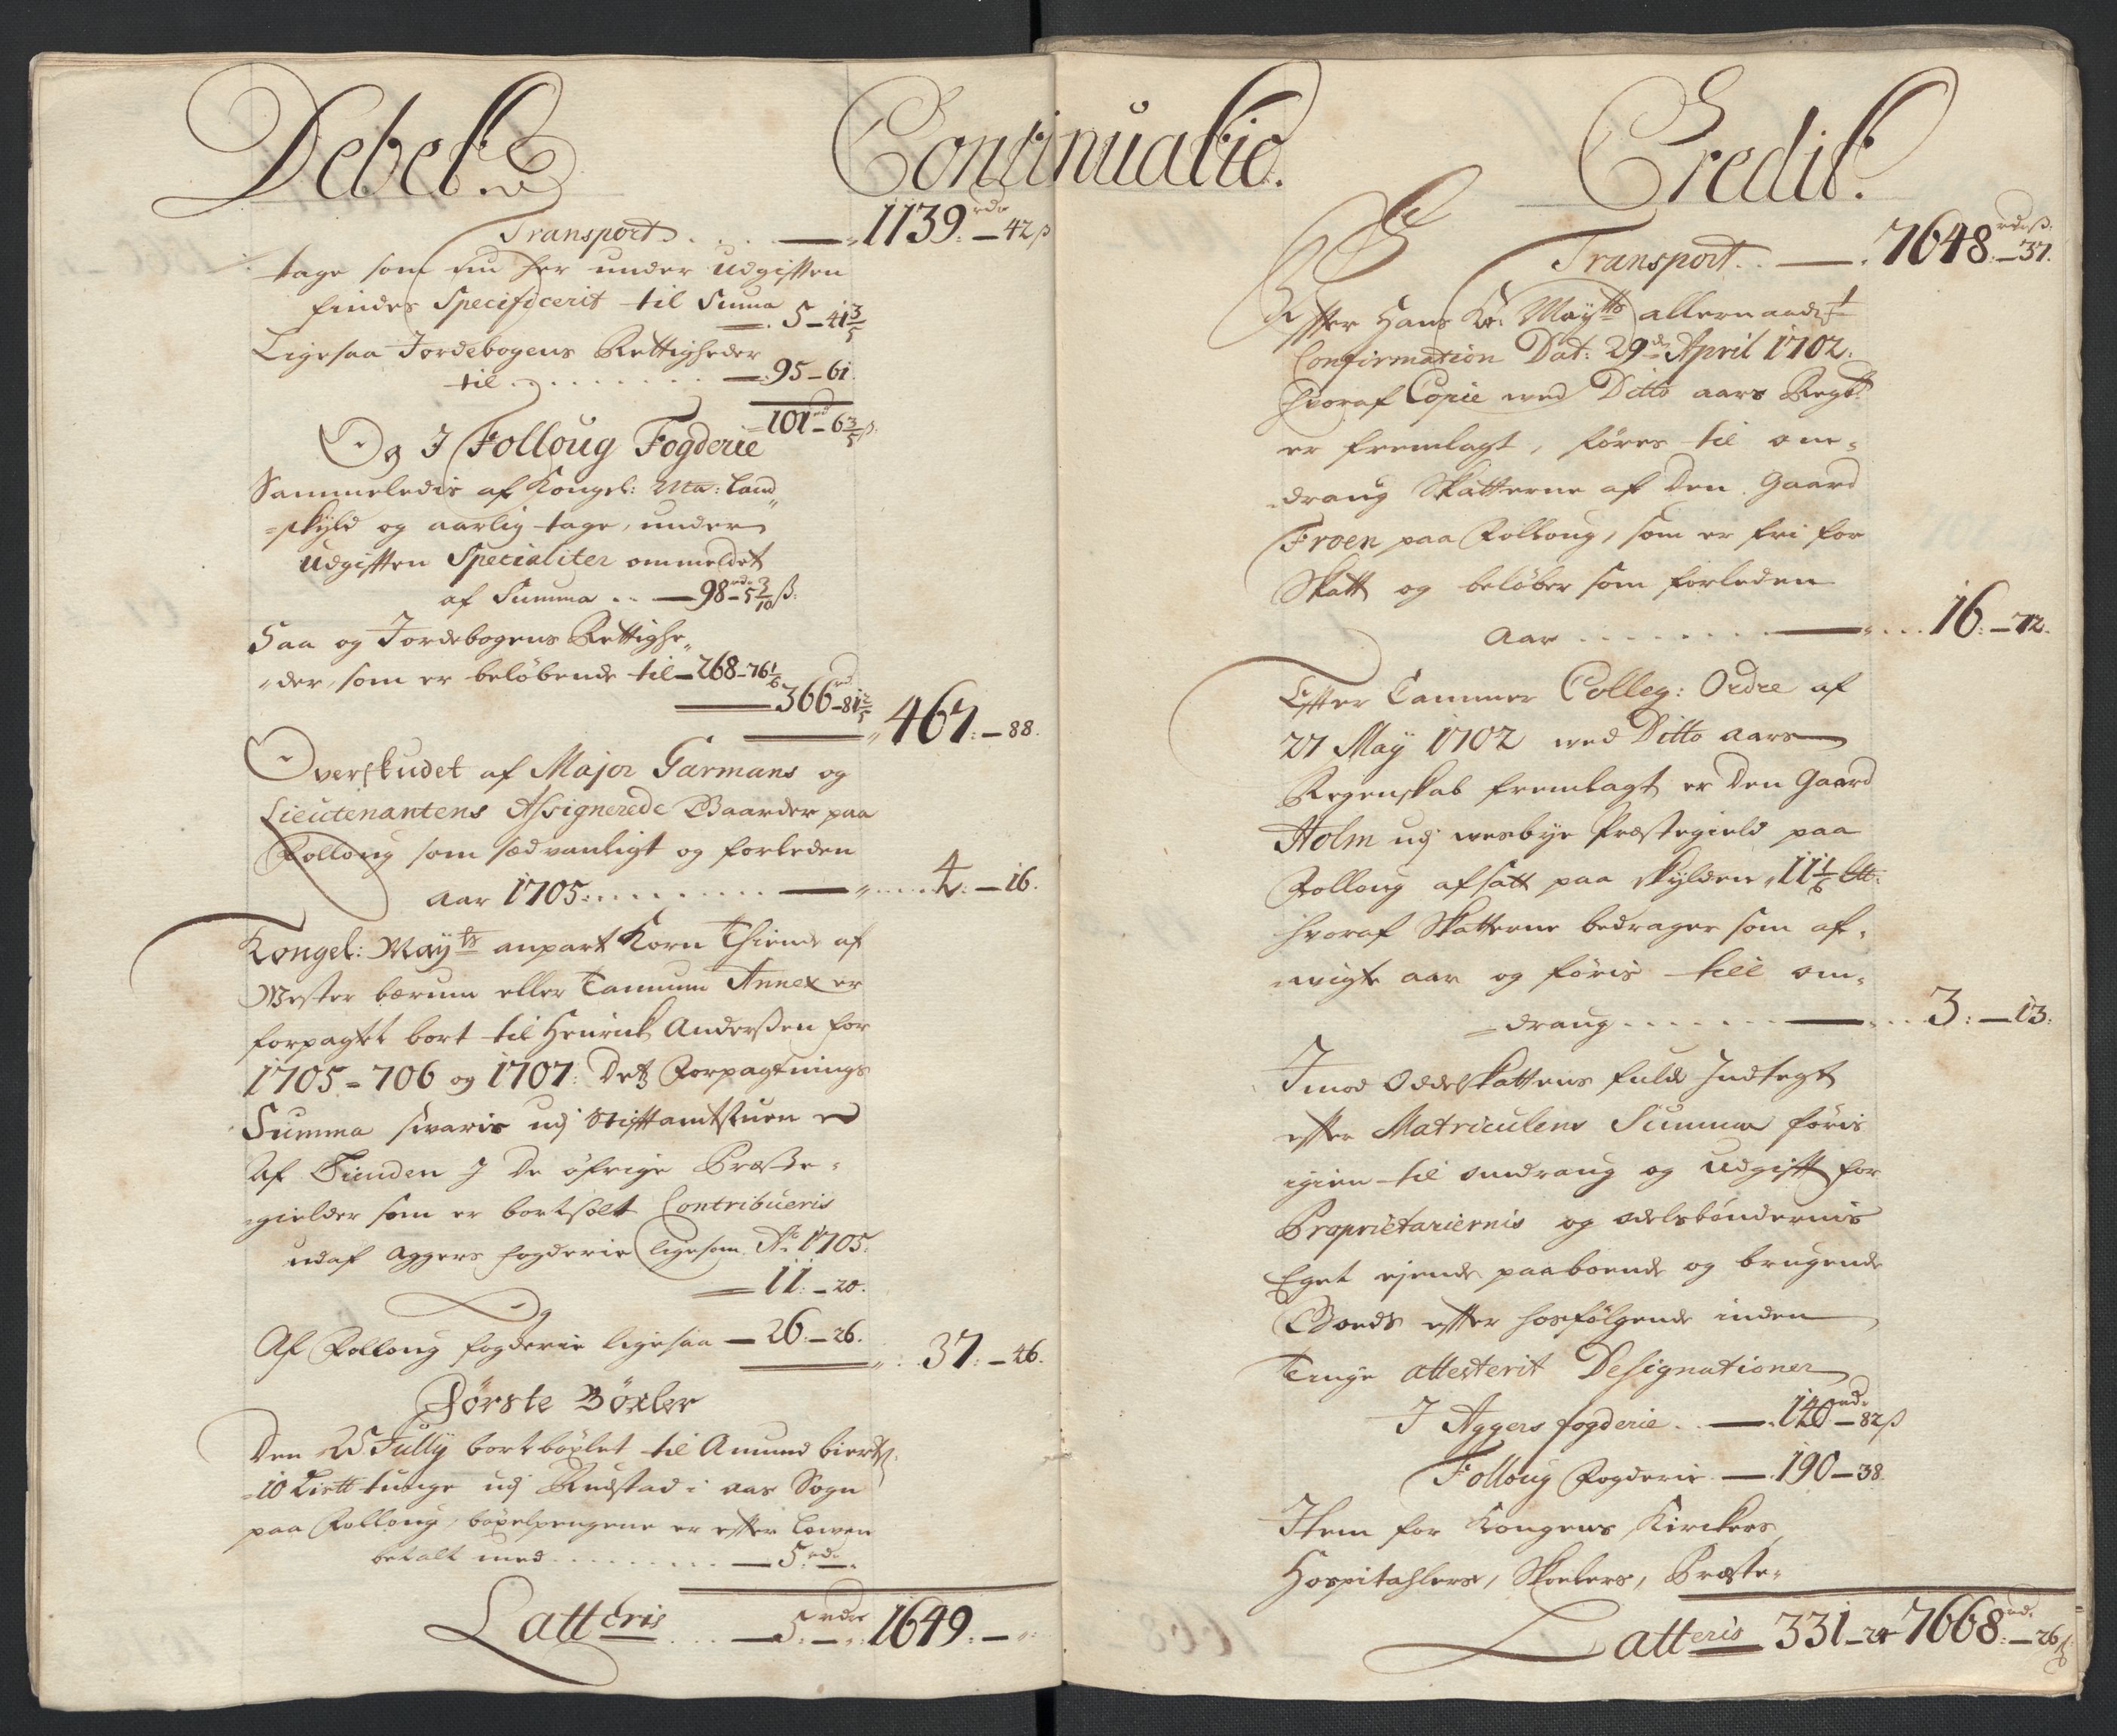 Debet
Continuatio.
Transport . . . — 1139 rdr — 42 ß
tage som nu her under Udgifften
findes Specificerit til Suma
— 5 — 41 3/5
Ligesaa Jordebogens Rettigheder
til . . . . . . . . — 95 — 61.
101 rd — 6 3/5 ß.
Og J Folloug Fogderie
Sammeledis af Kongel: Ma: Land
=skyld og aarlig tage, under
Udgifften Specialiter ommeldet
af Summa . . — 98 rdr — 5 3/10 ß.
Saa og Jordebogens Rettighe„
„der, som er beløbende til — 268 — 76 1/6
— 366 rd — 81 2/5 467: — 88.
Overskudet af Major Garmans og
Lieutenantens Assignerede Gaarder paa
Folloug som sædvanligt og forleden
Aar 1705: . . . . . . . — 4: — 16.
Kongel: Mayts anpart Korn Thiende af
Wester bærum eller Tanum Annex er
forpagtet bort til Henrick Anderßen for
1705 = 706 og 1707: Dets Forpagtnings
Summa svaris udj Stifftamtstuen
Af Tienden J De øfrige Præste=
=gielder som er bortsolt Contribueris
udaf Aggers fogderie ligesom Ao 1705.
— 11: — 20.
Og
Af Folloug fogderie ligesaa — 26: — 26. 37: — 46.
Første Bøxler
Den 25 Jully bortbøxlet til Amund
10 Lis℔ tunge udj Rudstad i Aas Sogn
paa Folloug, bøxelpengene er effter Lowen
betalt med . . . . . . . — 5 rdr —
Latteris . . . — 5 rdr — 1649: —
Credit.
Transport . . — 7648 rdr — 37 ß.
Effter Hans Kr: Mayts allernaadigst
Confirmation Dat: 29de April 1702.
Hvoraf Copie wed Ditto aars Regsk
er fremlagt, føres til om=
=draug Skatterne af Den Gaard
Froen paa Folloug, som er fri for
Skatt og beløber som forleden
Aar . . . . . . . . — 16: — 72.
Effter Cammer Colleg: Ordre af
27 May 1702 wed Ditto aars
Regenskab fremlagt er Den Gaard
Holm udj wesbye Præstegield paa
Folloug afsatt paa skylden 11 1/6 L℔:
hvoraf Skatterne bedrager som af=
=wigte aar og føris till om=
=draug . . . . . . — 3: — 13:
Jmod Oddelskattens fulde Jndtegt
effter Matriculens Summa føris
igien til omdraug og Udgifft for
Proprietariernis og odelsbøndernis
Eget ejende paaboende og brugende
Goeds effter hosfølgende inden
Tinge attesterit Designationer
J Aggers fogderie . . — 140 rdr — 82 ß
Folloug Fogderie — 190 — 38.
Jtem for Kongens Kirckers,
Hospitahlers, Skolers, Præste=
Latteris 331 — 24 7668 rdr — 26 ß